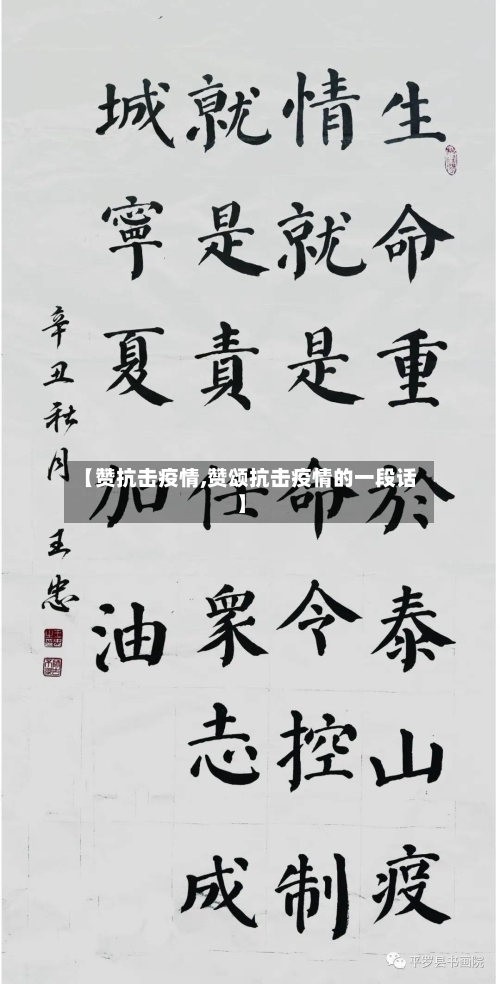 生命重於泰山疫
情就是命令控制
就是責任眾志成
城寧夏加油
辛丑秋月 王忠
【赞抗击疫情,赞颂抗击疫情的一段话
】
平罗县书画院